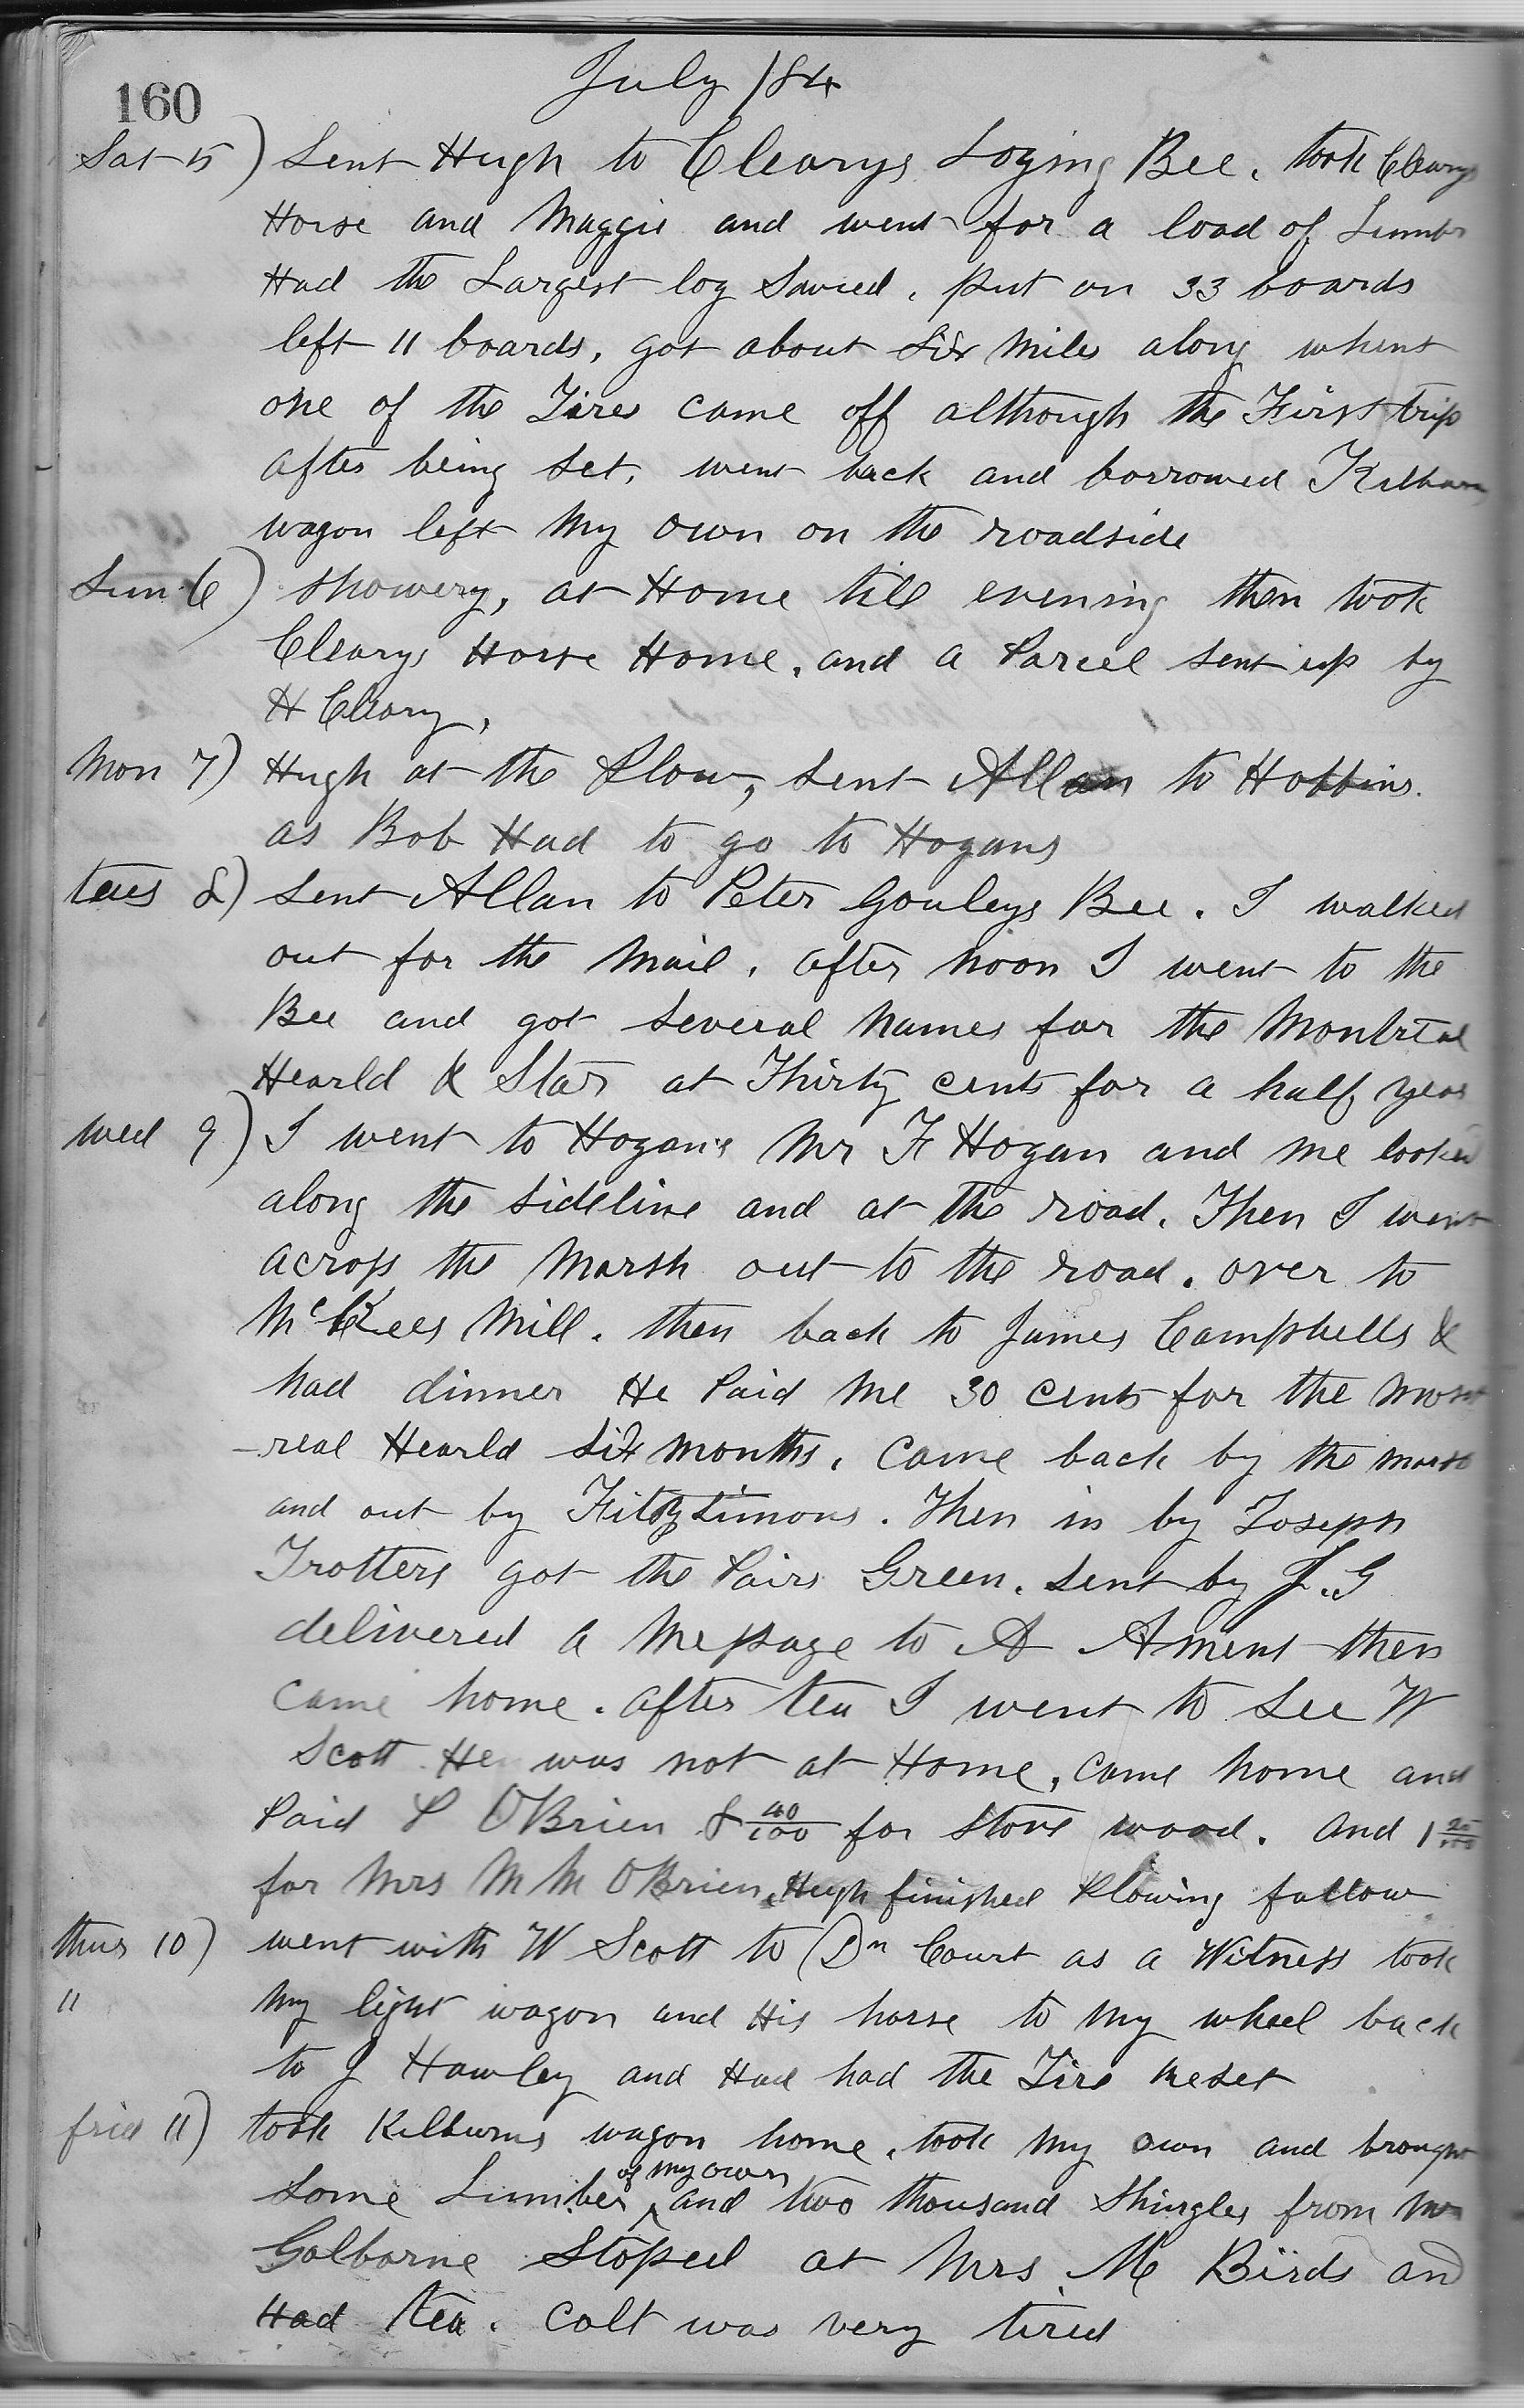 160
July /84
Sat 5) Sent Hugh to Clearys Loging Bee. took Clearys
Horse and Maggie and went for a load of Lumber
Had the Largest log Sawed. put on 33 boards
left 11 boards, got about Six Miles along when
one of the Tires came off although the First trip
after being Set. went back and borrowed Kilburns
wagon left My own on the roadside
Sun 6) Showery, at Home till evening then took
Clearys Horse Home. and a Parcel Sent up by
H Cleary.
Mon 7) Hugh at the Plow, Sent Allan to Hobbins.
as Bob Had to go to Hogans
tues 8) Sent Allan to Peter Gouleys Bee. I walked
out for the Mail. after Noon I went to the
Bee and got Several Names for the Montreal
Hearld & Star at Thirty cents for a half year
wed 9) I went to Hogan's Mr F Hogan and me looked
along the Sideline and at the road. Then I went
across the Marsh out to the road. over to
McKees Mill. then back to James Campbells &
had dinner He Paid Me 30 cents for the Mont
-real Hearld Six Months. Came back by the Marsh
and out by Fitzsimons. Then in by Joseph
Trotters got the Pairs Green. Sent by J.G
delivered a Message to A Ament then
came home. after tea I went to See W
Scott He was not at Home, came home and
Paid P OBrien 8 40/100 for Stove wood. And 1 25/100
for Mrs M M OBrien. Hugh finished Plowing fallow
thurs 10) went with W Scott to Dn Court as a Witness took
" My light wagon and His horse to My wheel back
to J Hawley and Had had the Tire Reset
frid 11) took Kilburns wagon home. took My own and brought
of my own
Some Lumber ^ and two thousand Shingles from Mr
Golborne Stoped at Mrs M Birds and
Had tea. Colt was very tired